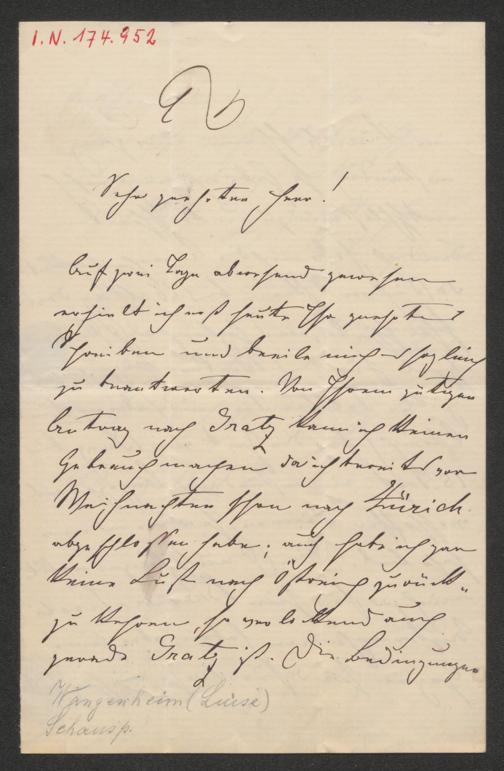 I.N. 174.952
Sehr geehrter Herr!
Auf zwei Tage abwesend gewesen
erhielt ich erst heute Ihr geehrtes
Schreiben und beeile mich es sogleich
zu beantworten. Von Ihrem gütigen
Antrag nach Gratz kann ich keinen
Gebrauch machen da ich bereits vor
Weihnachten schon nach Zürich
abgeschlossen habe; auch habe ich gar
keine Lust nach Östreich zurück-
zu kehren, so verlockend auch
gerade Gratz ist. Die Bedingungen
Wangenheim (Luise)
Schausp.